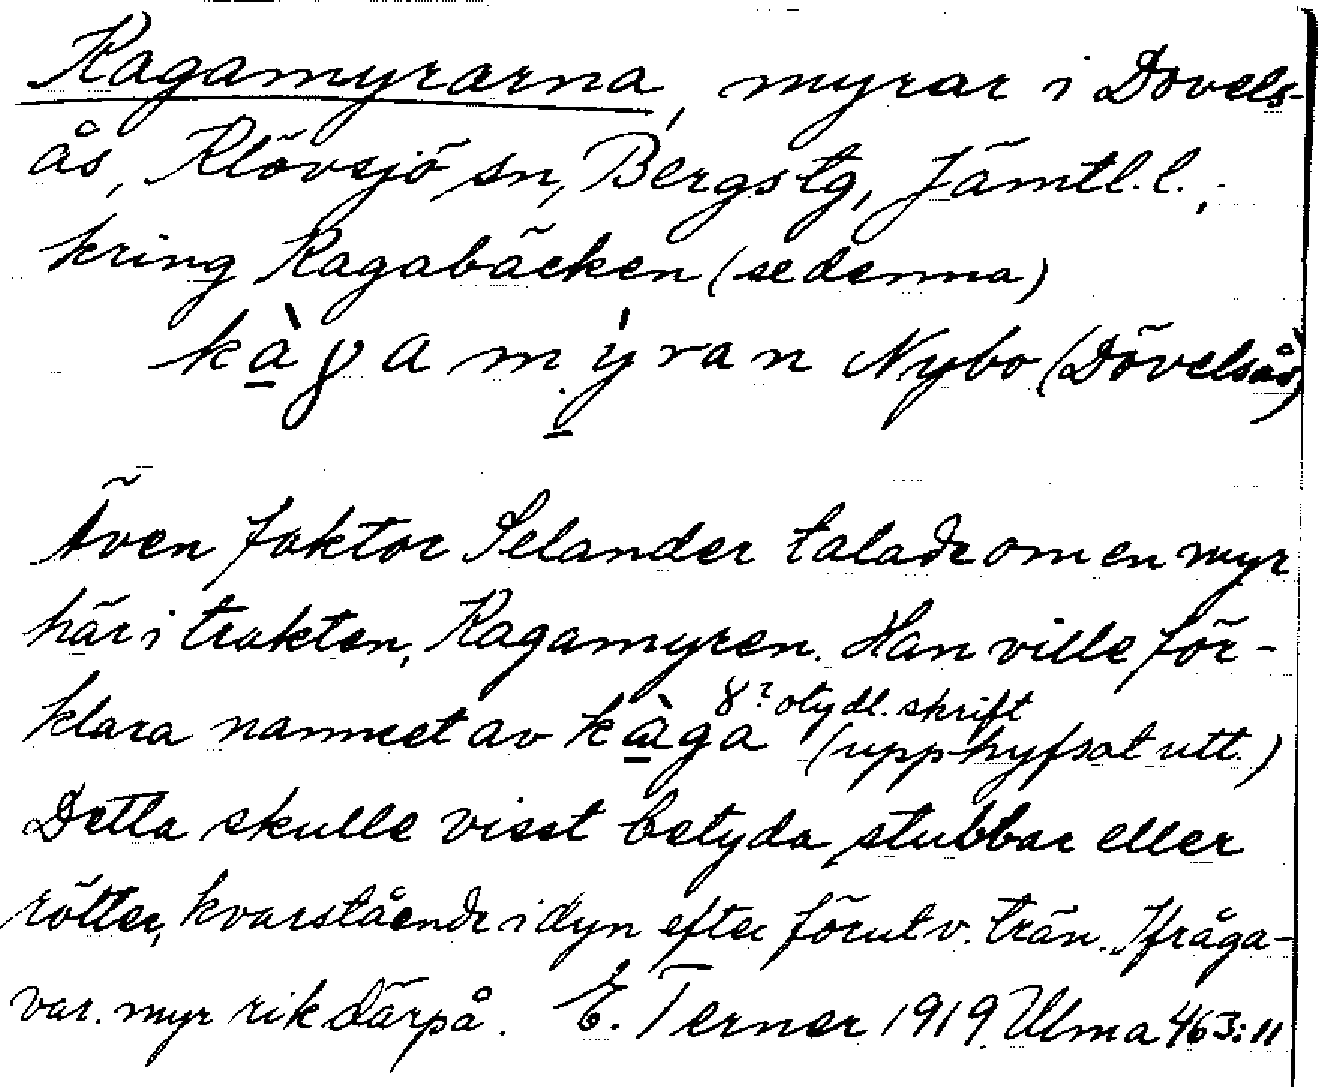 Kagamyrarna, myrar i Dövels-
ås, Klövsjö sn, Bergs tg, Jämtl.l.,
kring Kagabäcken (se denna)
kàɣa mýran Nybo (Dövelsås)
Även faktor Selander talade om en myr
här i trakten, Kagamyren. Han ville för-
klara namnet av kàga ɣ? otydl. skrift (upphyfsat utt.)
Detta skulle visst betyda stubbar eller
rötter, kvarstående i dyn efter förutv. trän. Ifråga-
var. myr rik därpå. E. Terner 1919 Ulma 463:11